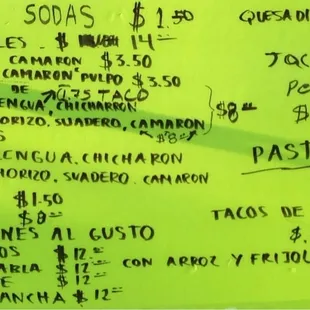 SODAS $1.50
LES. $ 14=
CAMARON $3.50
CAMARON PULPO $3.50
DE 1.75 TACO
ENGUA, CHICHARRON
ORIZO, SUADERO, CAMARON $8=
$8=
S
LENGUA, CHICHARON
HORIZO, SUADERO. CAMARON
$1.50
$8=
NES AL GUSTO
OS $12=
ABLA $12=
E $12=
ANCHA $12=
CON ARROZ Y FRIJOL
QUESADI
TAC
PO
$
PAST
TACOS DE
$.